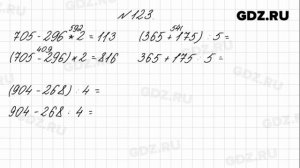 GDZ.RU
№123
592 541
705 - 296 * 2 = 113 (365 + 175) · 5 =
409
(705 - 296) * 2 = 816 365 + 175 · 5 =
(904 - 268) · 4 =
904 - 268 · 4 =
GDZ.RU